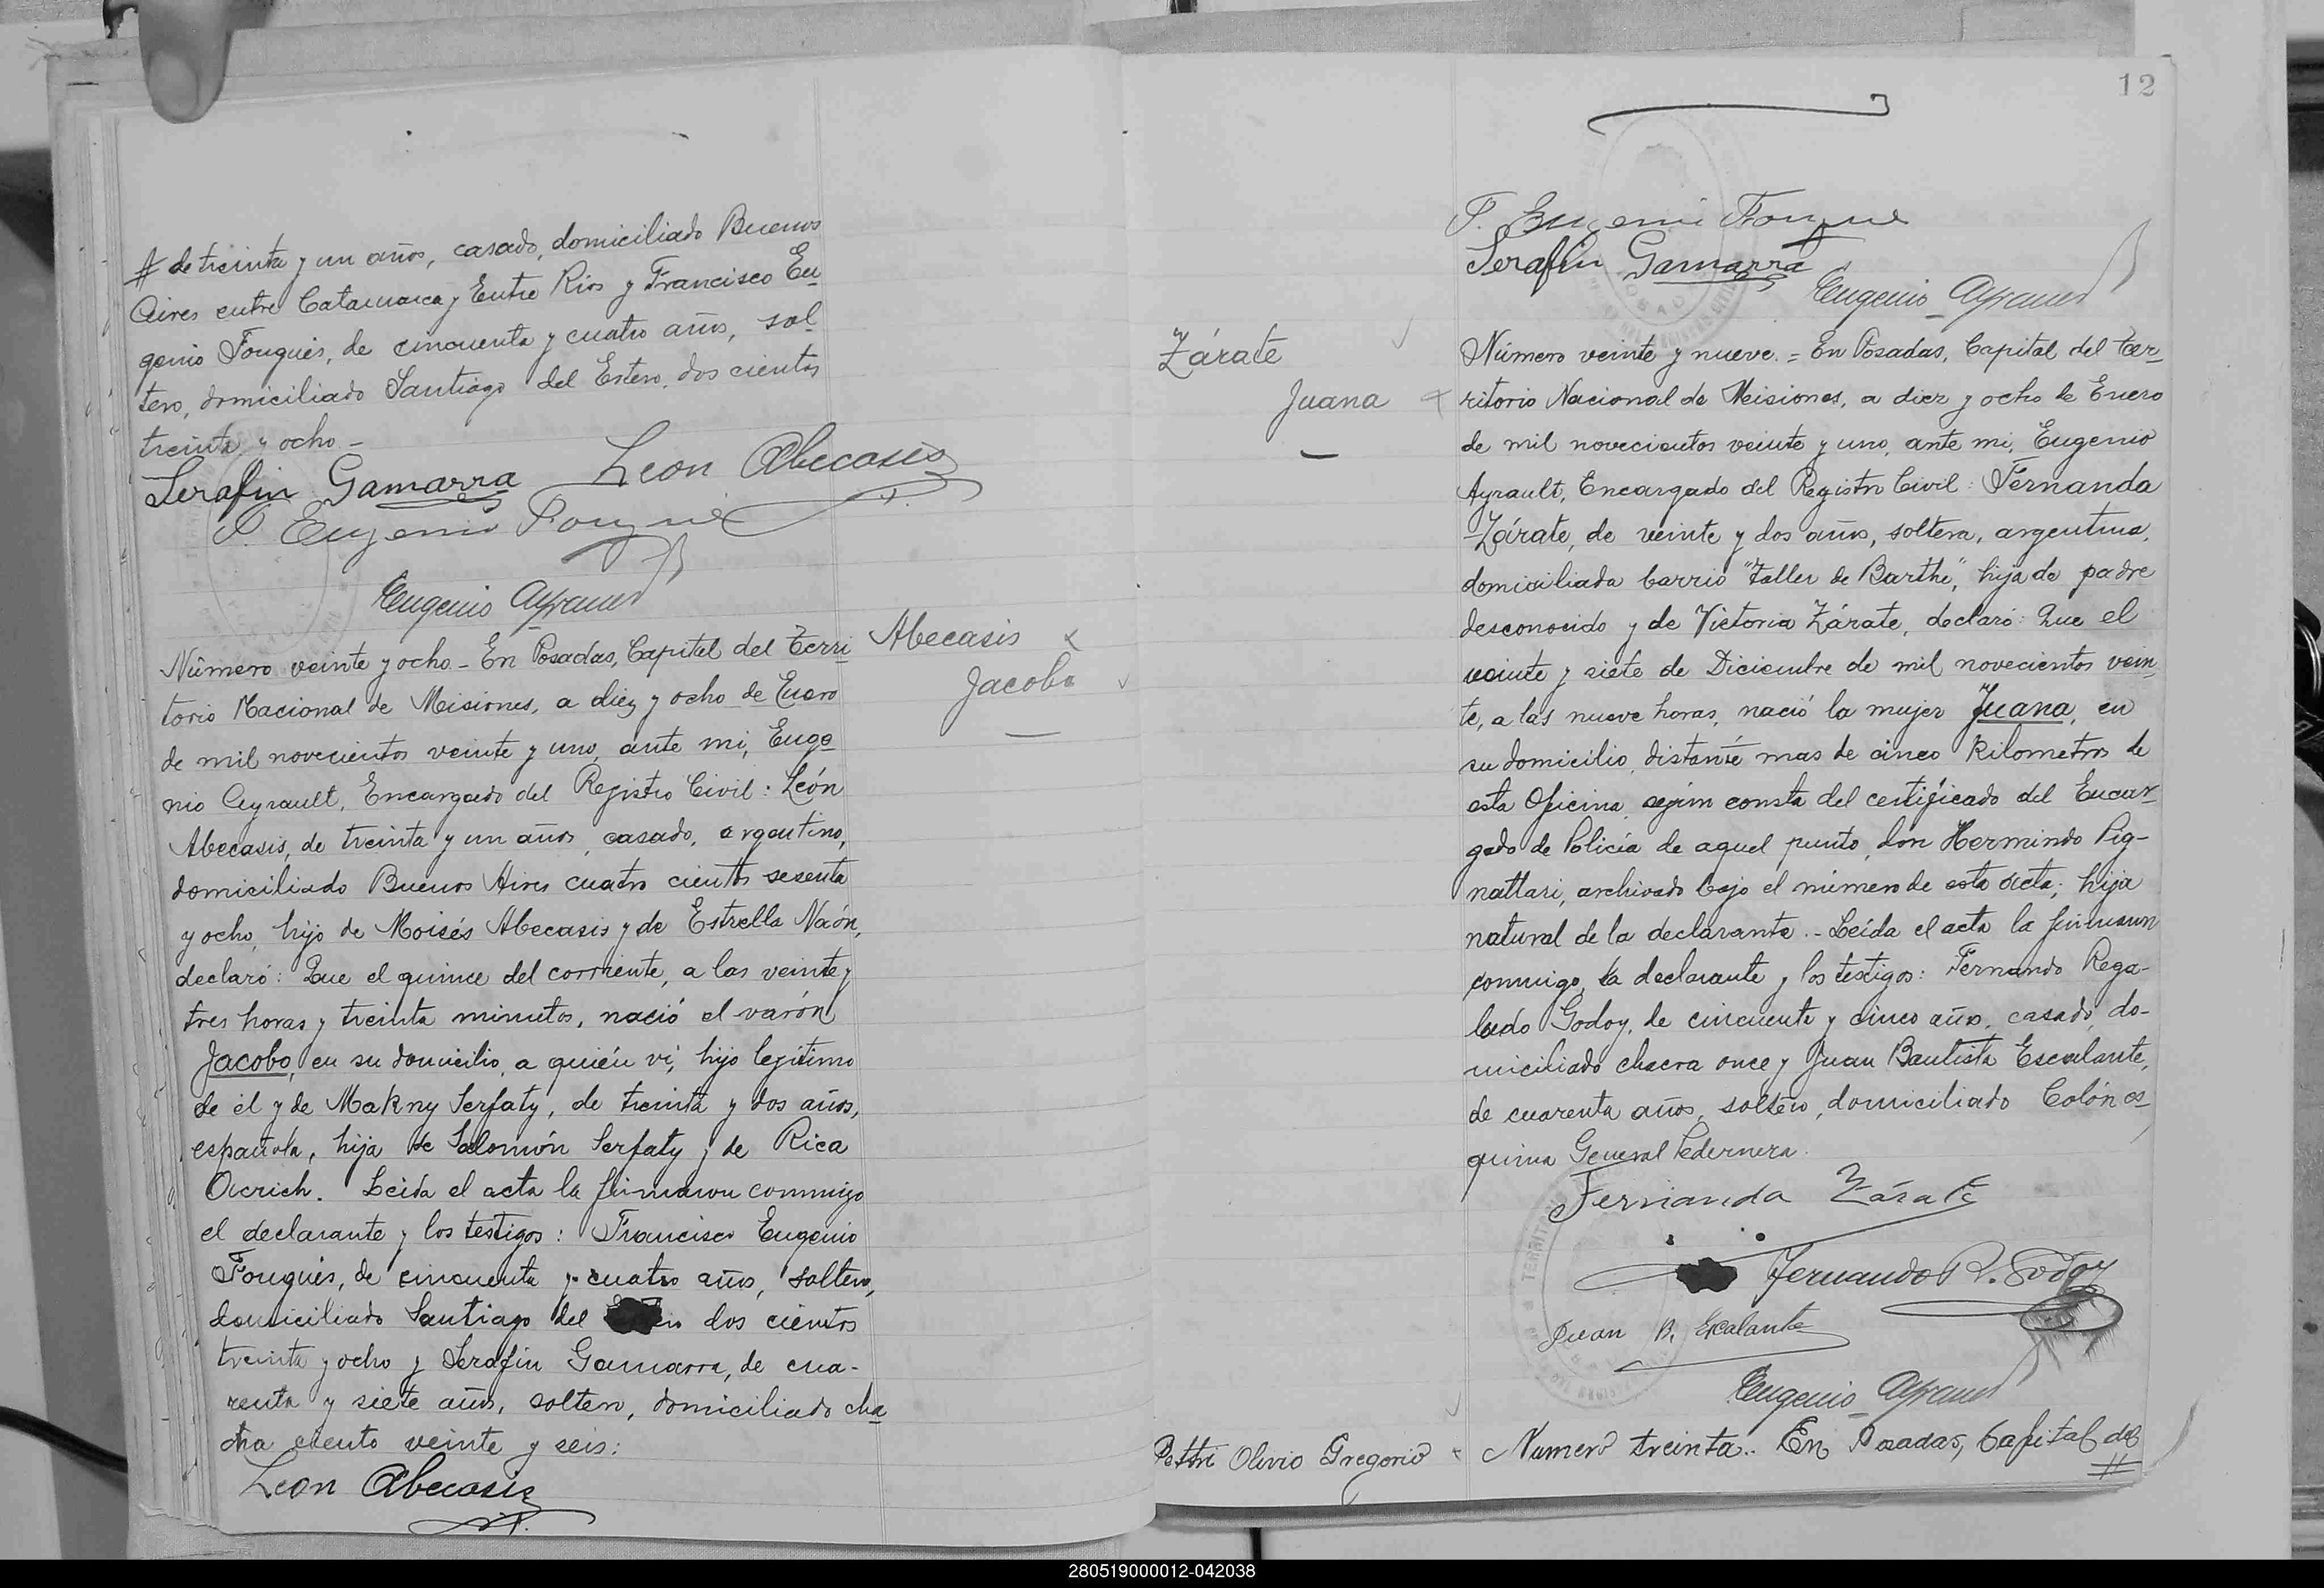 # de treinta y un años, casado, domiciliado Buenos
Aires entre Catamarca y Entre Rios y Francisco Eu
genio Fougués, de cincuenta y cuatro años, sol
tero, domiciliado Santiago del Estero, dos cientos
treinta y ocho.-
Serafin Gamarra Leon Abecasis
F. Eugenio Fougué
Eugenio Ayrault
Número veinte y ocho.- En Posadas, Capital del Terri
torio Nacional de Misiones, a diez y ocho de Enero
de mil novecientos veinte y uno, ante mi, Euge
nio Ayrault, Encargado del Registro Civil: León
Abecasis, de treinta y un años, casado, argentino,
domiciliado Buenos Aires cuatro cientos sesenta
y ocho, hijo de Moisés Abecasis y de Estrella Naón,
declaró: Que el quince del corriente, a las veinte y
tres horas y treinta minutos, nació el varón
Jacobo, en su domicilio, a quién vi, hijo legítimo
de él y de Makny Serfaty, de treinta y dos años,
española, hija de Salomón Serfaty y de Rica
Ocrich. Leida el acta la firmaron conmigo
el declarante y los testigos: Francisco Eugenio
Fougués, de cincuenta y cuatro años, soltero,
domiciliado Santiago del dos cientos
treinta y ocho y Serafin Gamarra, de cua-
renta y siete años, soltero, domiciliado cha
cra ciento veinte y seis:
Leon Abecasis
Abecasis
Jacobo
12
F. Eugenio Fougue
Serafin Gamarra
Eugenio Ayrault
Zárate
Juana
Número veinte y nueve.= En Posadas, Capital del Ter-
ritorio Nacional de Misiones, a diez y ocho de Enero
de mil novecientos veinte y uno, ante mi, Eugenio
Ayrault, Encargado del Registro Civil: Fernanda
Zárate, de veinte y dos años, soltera, argentina,
domiciliada barrio "Taller de Barthe", hija de padre
desconocido y de Victoria Zárate, declaró: Que el
veinte y siete de Diciembre de mil novecientos vein
te, a las nueve horas, nació la mujer Juana, en
su domicilio, distante mas de cinco Kilometros de
esta Oficina, según consta del certificado del Encar
gado de Policía de aquel punto, don Hermindo Pig-
nattari, archivado bajo el número de esta acta; hija
natural de la declarante.- Leída el acta la firmaron
conmigo, la declarante y los testigos: Fernando Rega-
lado Godoy, de cincuenta y cinco años, casado, do-
miciliado chacra once y Juan Bautista Escalante,
de cuarenta años, soltero, domiciliado Colón es
quina General Pedernera.
Fernanda Zárate
Fernando R. Godoy
Juan B. Escalante
Eugenio Ayrault
Pettri Olivio Gregorio
Numero treinta.. En Posadas, Capital del
#
280519000012-042038